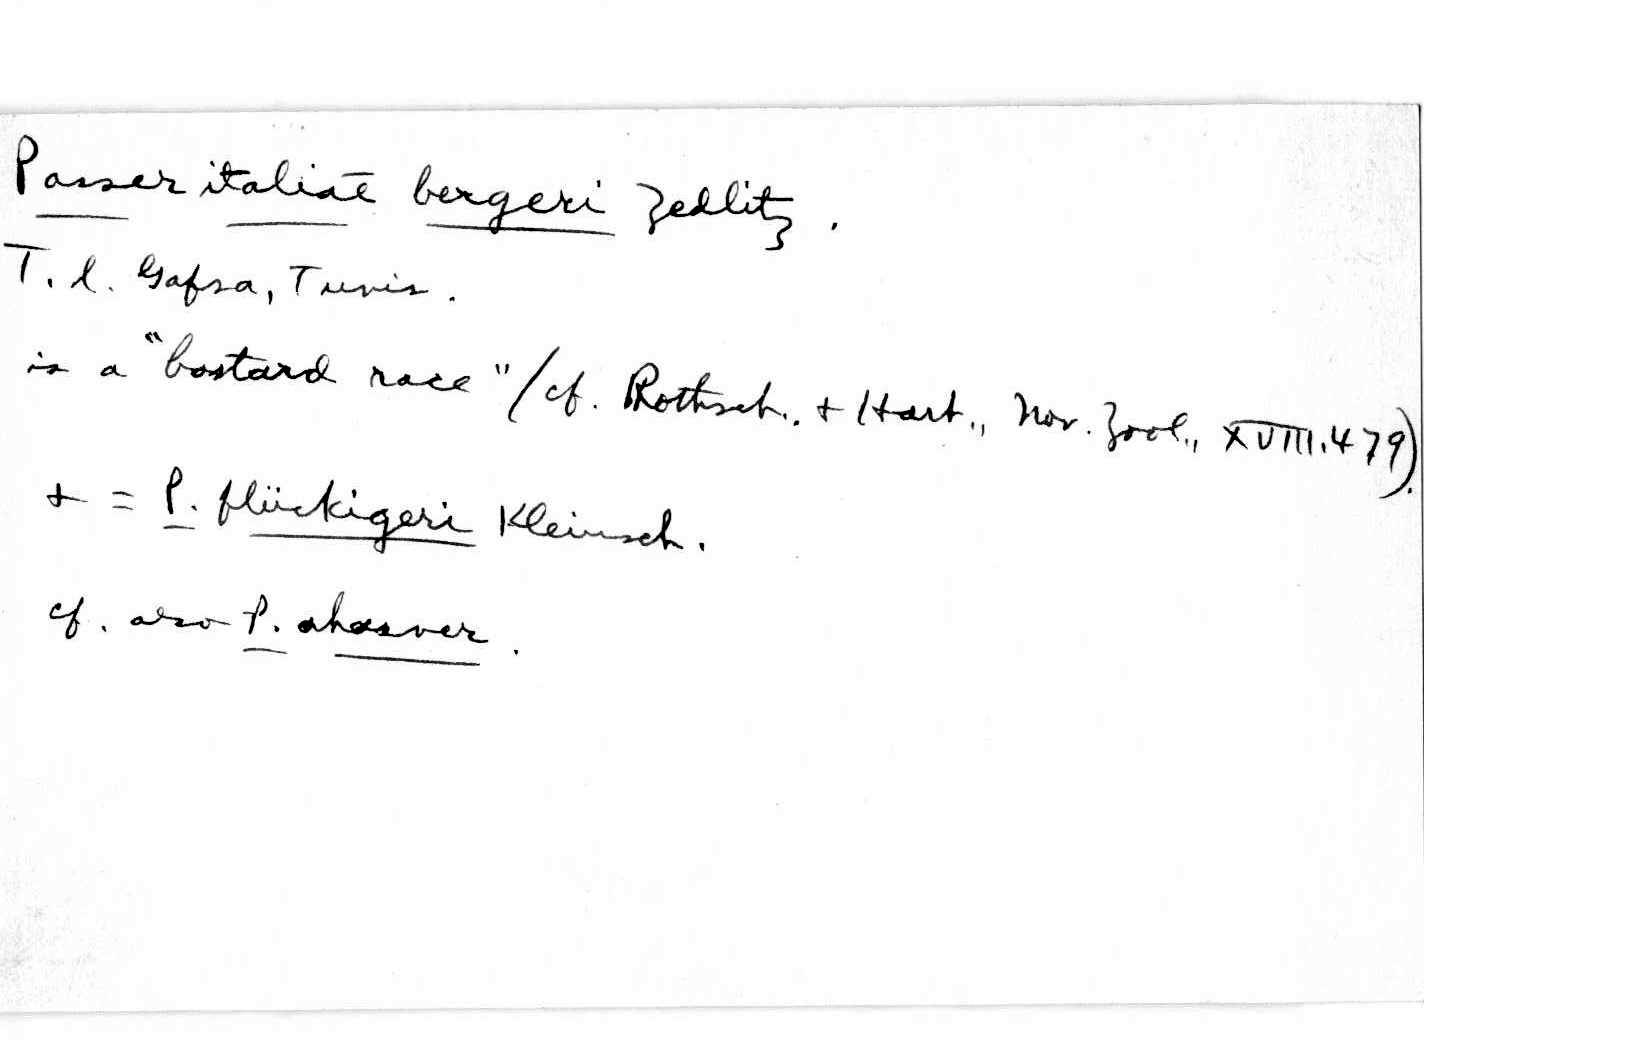 Passer italiae bergeri Zedlitz.
T. l. Gafsa, Tunis.
is a "bastard race" (cf. Rothsch. + Hart., Nov. Zool., XVIII.479).
+ = P. flückigeri Kleinsch.
cf. also P. ahasver.